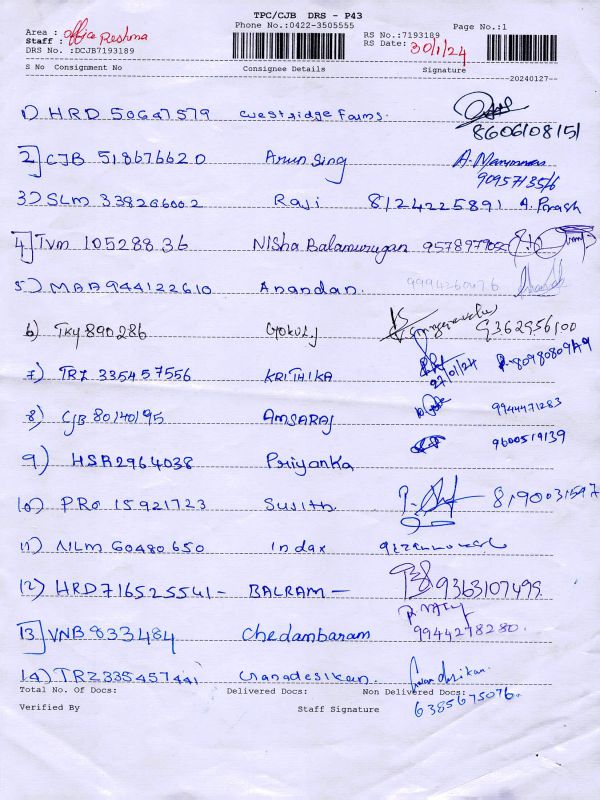 TPC/CJB DRS - P43
Phone No.:0422-3505555
Area : office
Staff : Reshma
DRS No. :DCJB7193189
RS No.:7193189
RS Date: 30/1/24
Page No.:1
S No Consignment No Consignee Details Signature
20240127
1) HRD 50647579 Westridge Farms.
8606108151
2 CJB 518676620 Arun Sing
9095713516
3) SLM 338266002 Raji 8124225891 A. Prash
4 TVM 10528836 Nisha Balamurugan
5) MAA944122610 Anandan. 9994260476
6) TKY 890286 Gokul J 9362956100
7) TRZ 335457556 KRITHIKA
27/01/24
8) CJB 80140195 AMSARAJ 9944471283
9) HSR2964038 Priyanka 9600519139
10) PRO 15921723 Sujith 8190031597
11) NLM 60480650 Indax
12) HRD716525541 - BALRAM - 9363107499
13 VNB 833484 Chedambaram
9944278280.
14) TRZ335457441 Gnanadesikan.
Total No. Of Docs: Delivered Docs: Non Delivered Docs:
6385675076.
Verified By Staff Signature